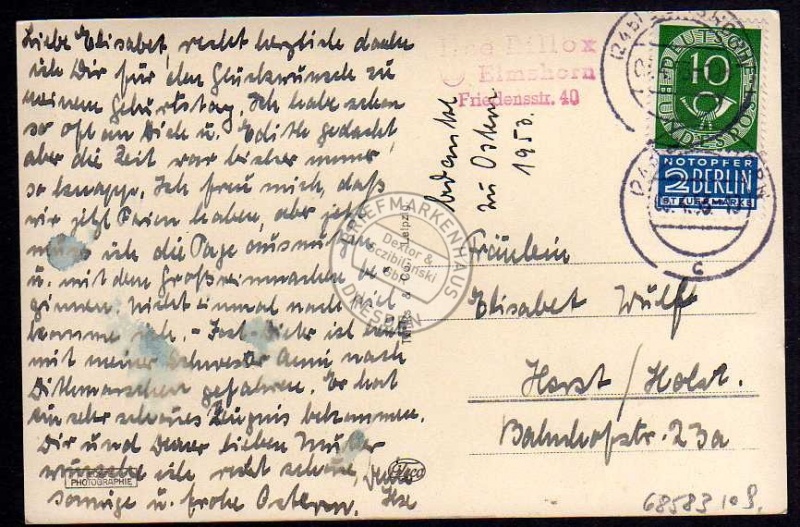 Liebe Elisabet, recht herzlich danke
ich Dir für den Glückwunsch zu
meinem Geburtstag. Ich habe schon
so oft an Dich u. Edith gedacht,
aber die Zeit war bisher immer
so knapp. Ich freu mich, daß
wir jetzt Ferien haben, aber jetzt
muss ich die Tage ausnutzen
u. mit dem Großreinmachen be
ginnen. Nicht einmal nach Kiel
komme ich. - Jost-Dieter ist
mit meiner Schwester Anni nach
Dithmarschen gefahren. Er hat
ein sehr schönes Zeugnis bekommen.
Dir und Deiner lieben Mutter
wünsche ich recht schöne,
sonnige u. frohe Ostern. Deine
Ilse
PHOTOGRAPHIE
Dillox
Elmshorn
Friedensstr. 40
bedankt
zu Ostern
1953.
DEUTSCHE
BUNDESPOST
10
NOTOPFER
2 BERLIN
STEUERMARKE
c
Fräulein
Elisabet Wulff
Horst / Holst.
Bahnhofstr. 23a
BRIEFMARKENHAUS
Dextor &
Sczibilanski
GbR
DRESDEN
68583